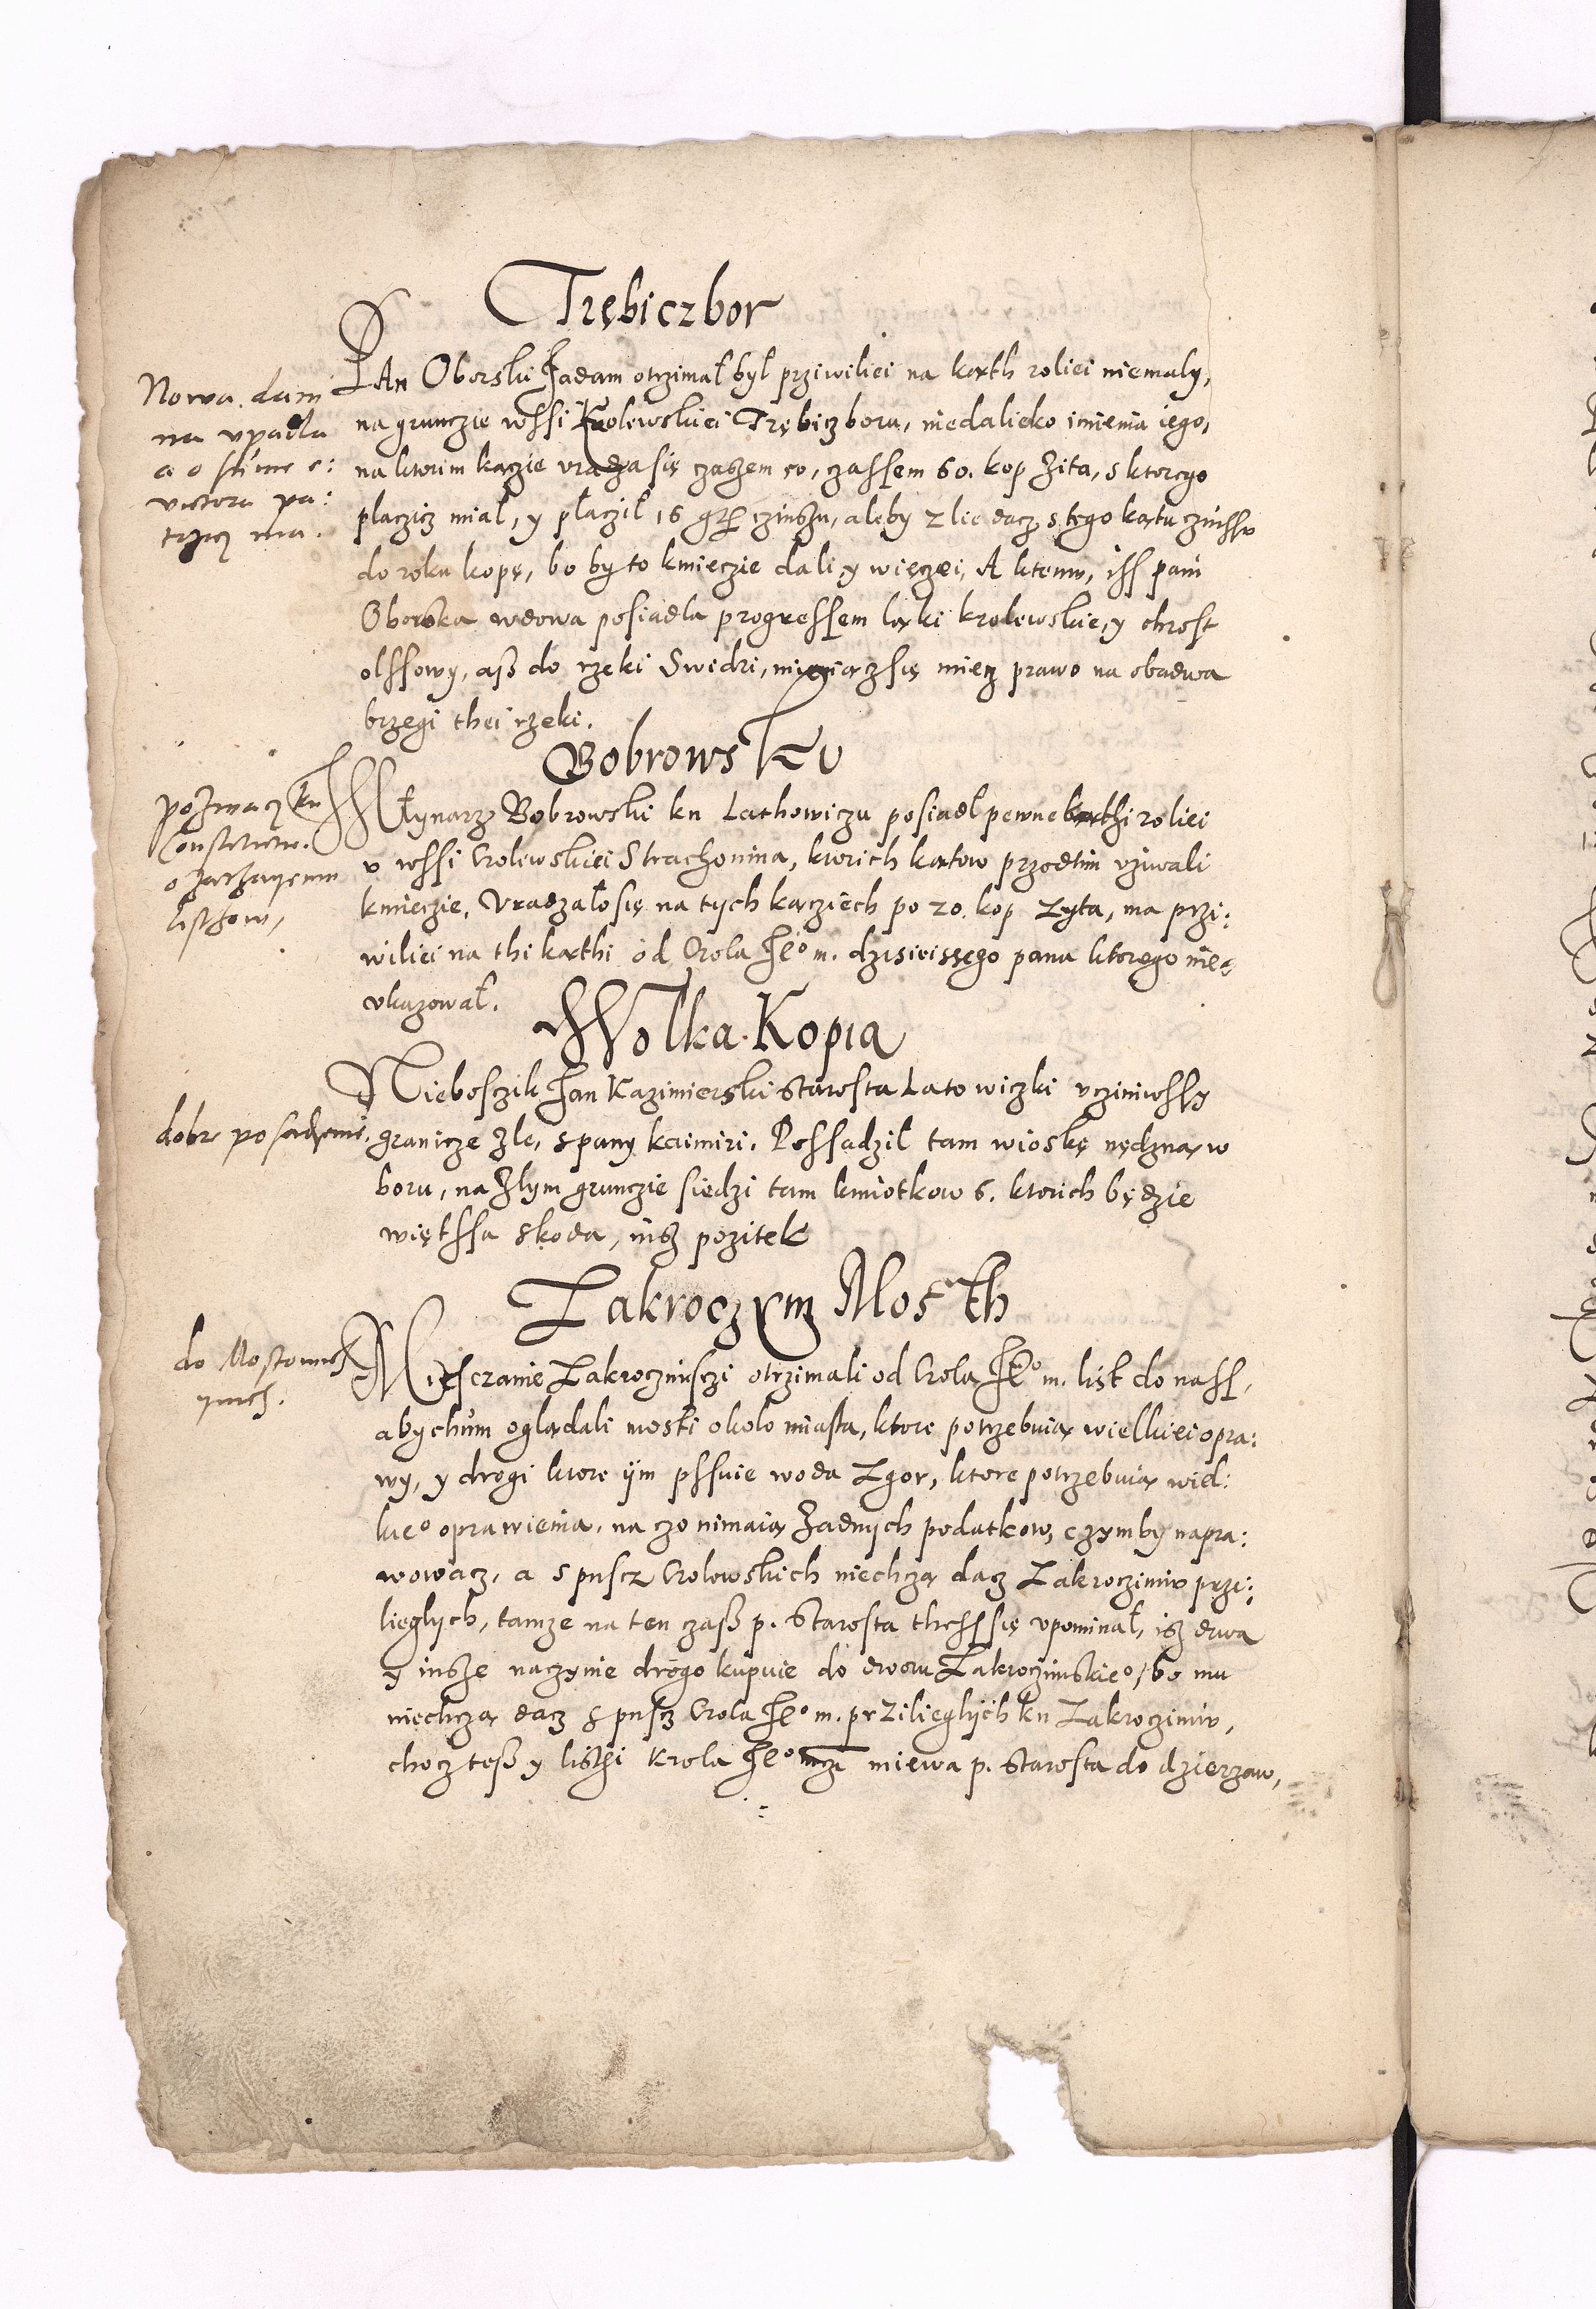 Trębiczbor
PAn Oborski Jadam otrzimał był priwiliei na kąth roliei niemały,
na grunczie wssi Krolewskiei Trębiczboru, niedalieko imienia iego,
na ktorim kączie uradza się czasem 50, czassem 60. kop Zita, s ktorego
placzicz mial, y płaczil 16 gr czinszu, aleby zlie dacz s tego kątu czinssu
do roku kopę, bo by to kmieczie dali y więczei, A ktemu, iss pani
Oborska wdowa posiadla progressem ląki krolewskie, y chrost
olssowy, asz do rzeki Swidri, mieniącz się miecz prawo na obadwa
brzegi thei rzeki.
Nowa dani
na upadla
a o
pa:
trzicz ma.
Bobrowski
Młynarz Bobrowski ku Lathowiczu posiadł pewne kąthi roliei
u wssi Crolewskiei Strachomina, ktorich kątow przedtim uziwali
kmieczie, Uradzało się na tych kącziech po 20. kop zyta, ma przi:
wiliei na thi kąthi od Crola Je° m. dzisieissego pana ktorego nie
ukazował.
pozwacz ku
Constitutii.
o
listhow,
Wolka Kopia
Nieboszik Jan Kazimierski Starosta Latowiczki ucziniwssy
granicze zle, s pany kaimiri. Possadził tam wioskę nędzną w
boru, na Złym grunczie siedzi tam kmiotkow 6. ktorich będzie
więtssa skoda, nisz pozitek
dobr posadzenie.
Zakroczym Mosth
Miesczanie Zakroczimsczi otrzimali od Crola Je° m. list do nass,
abychmi oglądali mosti okolo miasta, ktore potrzebuią wielkiei opra:
wy, y drogi ktore iim pssuie woda Zgor, ktore potrzebuią wiel:
kie° oprawienia, na czo nimaią Żadnych podatkow, czymby napra:
wowacz, a s puscz Crolewskich niechczą dacz Zakroczimiu przi:
lieglych, tamze na ten czasz p. Starosta thess się upominał, isz drwa
y insze naczynie drogo kupuie do dworu Zakroczimskie°, bo mu
niechczą dacz s puscz Crola Je° m. prziliegłych ku Zakroczimiu,
chocz tesz y listhi Krola Je° mczi miewa p. Starosta do dzierzaw,
do Mostownich